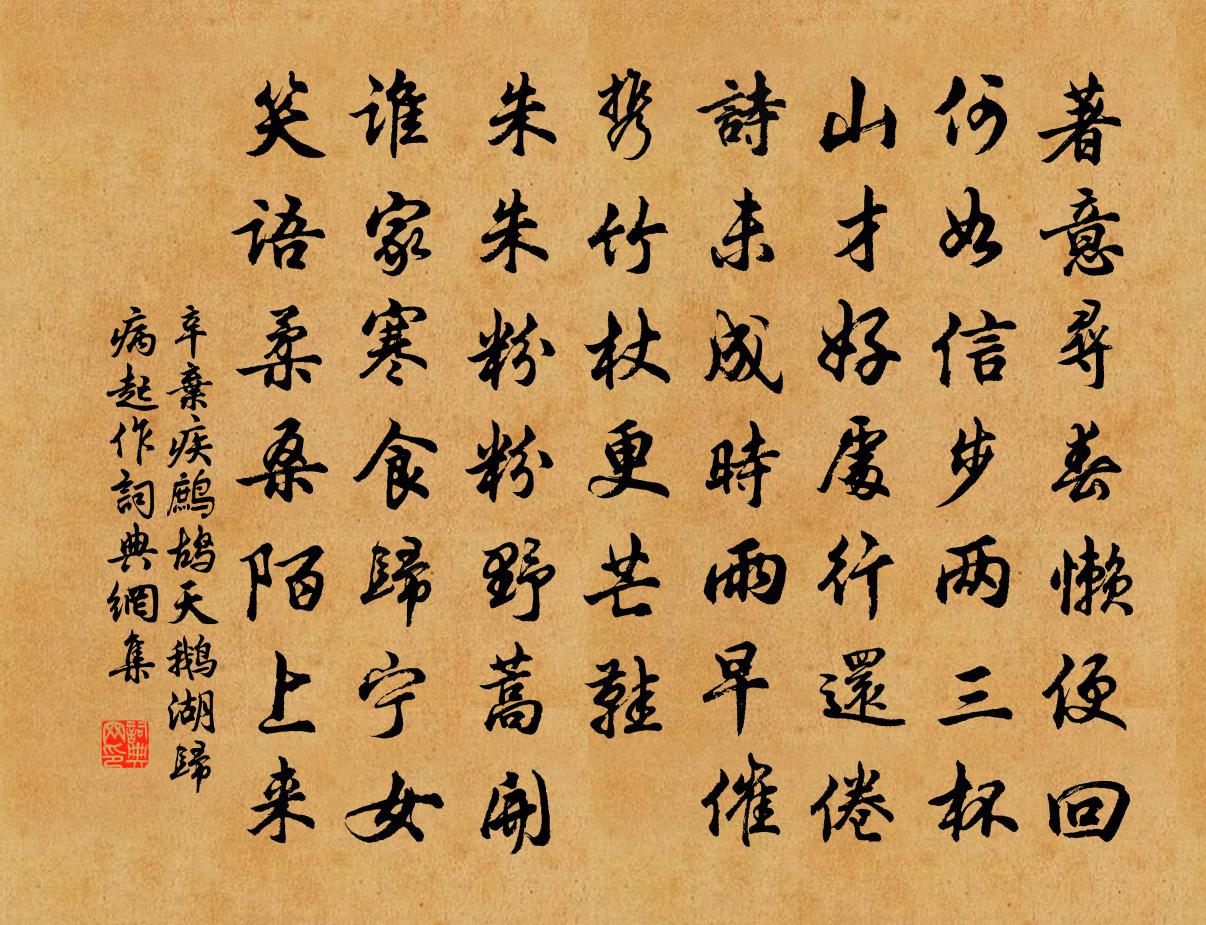 著意尋春懶便回
何如信步两三杯
山才好處行還倦
詩未成時雨早催
携竹杖更芒鞋
朱朱粉粉野蒿開
谁家寒食歸宁女
笑语柔桑陌上来
辛棄疾鷓鴣天鵝湖歸
病起作詞典網集
詞典
网印